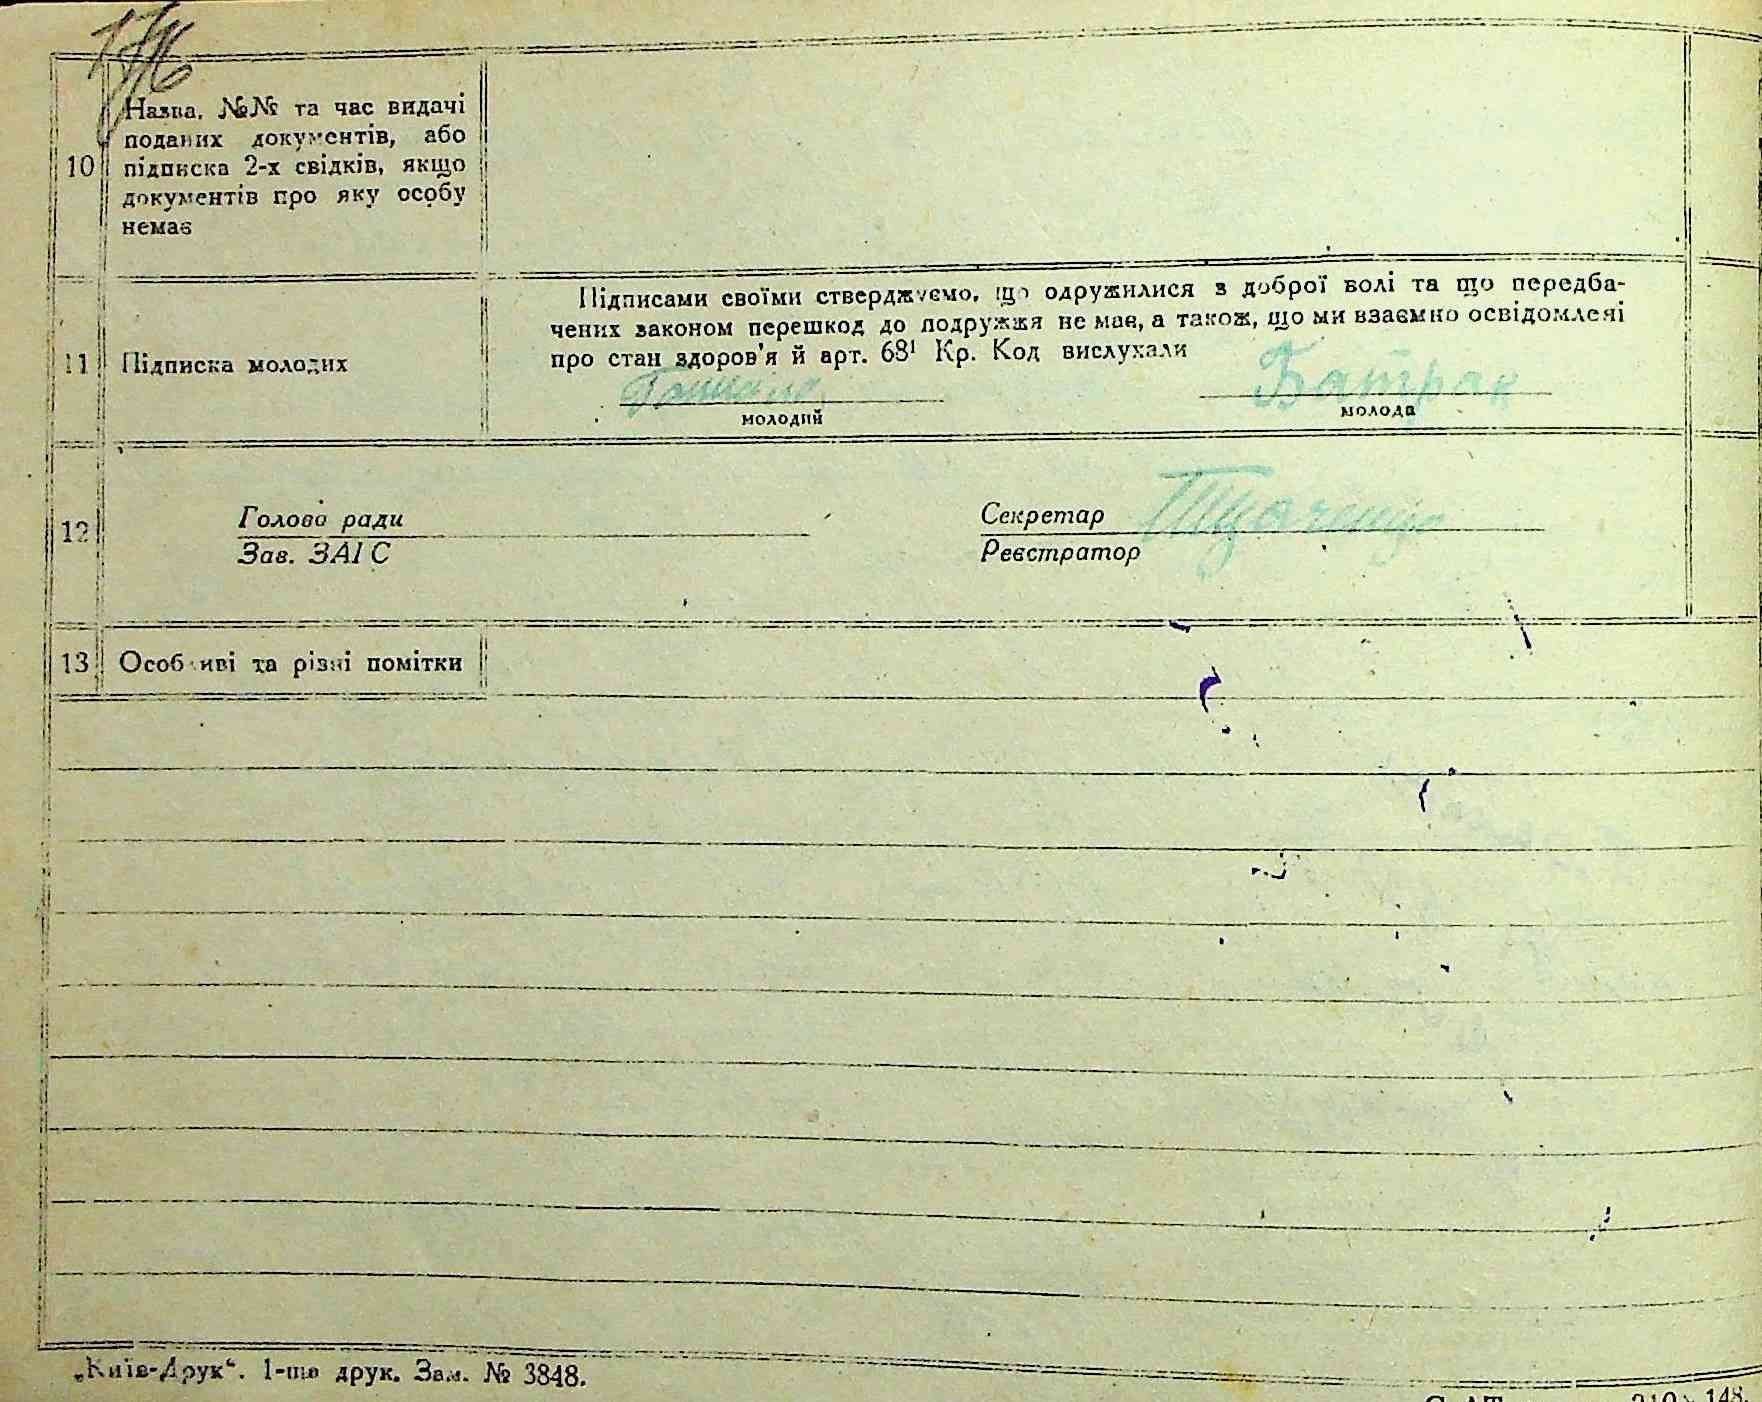 Назва, №№ та час видачі
поданих документів, або
10 підписка 2-х свідків, якщо
документів про яку особу
немає
Підписами своїми стверджуємо, що одружилися з доброї волі та що передба-
чених законом перешкод до подружжя не має, а також, що ми взаємно освідомлені
про стан здоров'я й арт. 68¹ Кр. Код вислухали
11 Підписка молодих
Батрак
молодий молода
12 Голова ради Секретар
Зав. ЗАГС Реєстратор
13 Особливі та різні помітки
„Київ-Друк“. 1-ша друк. Зам. № 3848.
148.